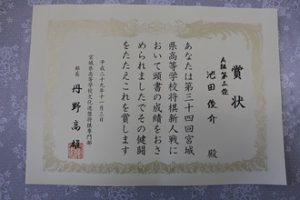 賞状
A級第三位
池田俊介 殿
あなたは第三十四回宮城
県高等学校将棋新人戦に
おいて頭書の成績をおさ
められましたのでその健闘
をたたえこれを賞します
平成二十九年十一月三日
宮城県高等学校文化連盟将棋専門部
部長 丹野高雄